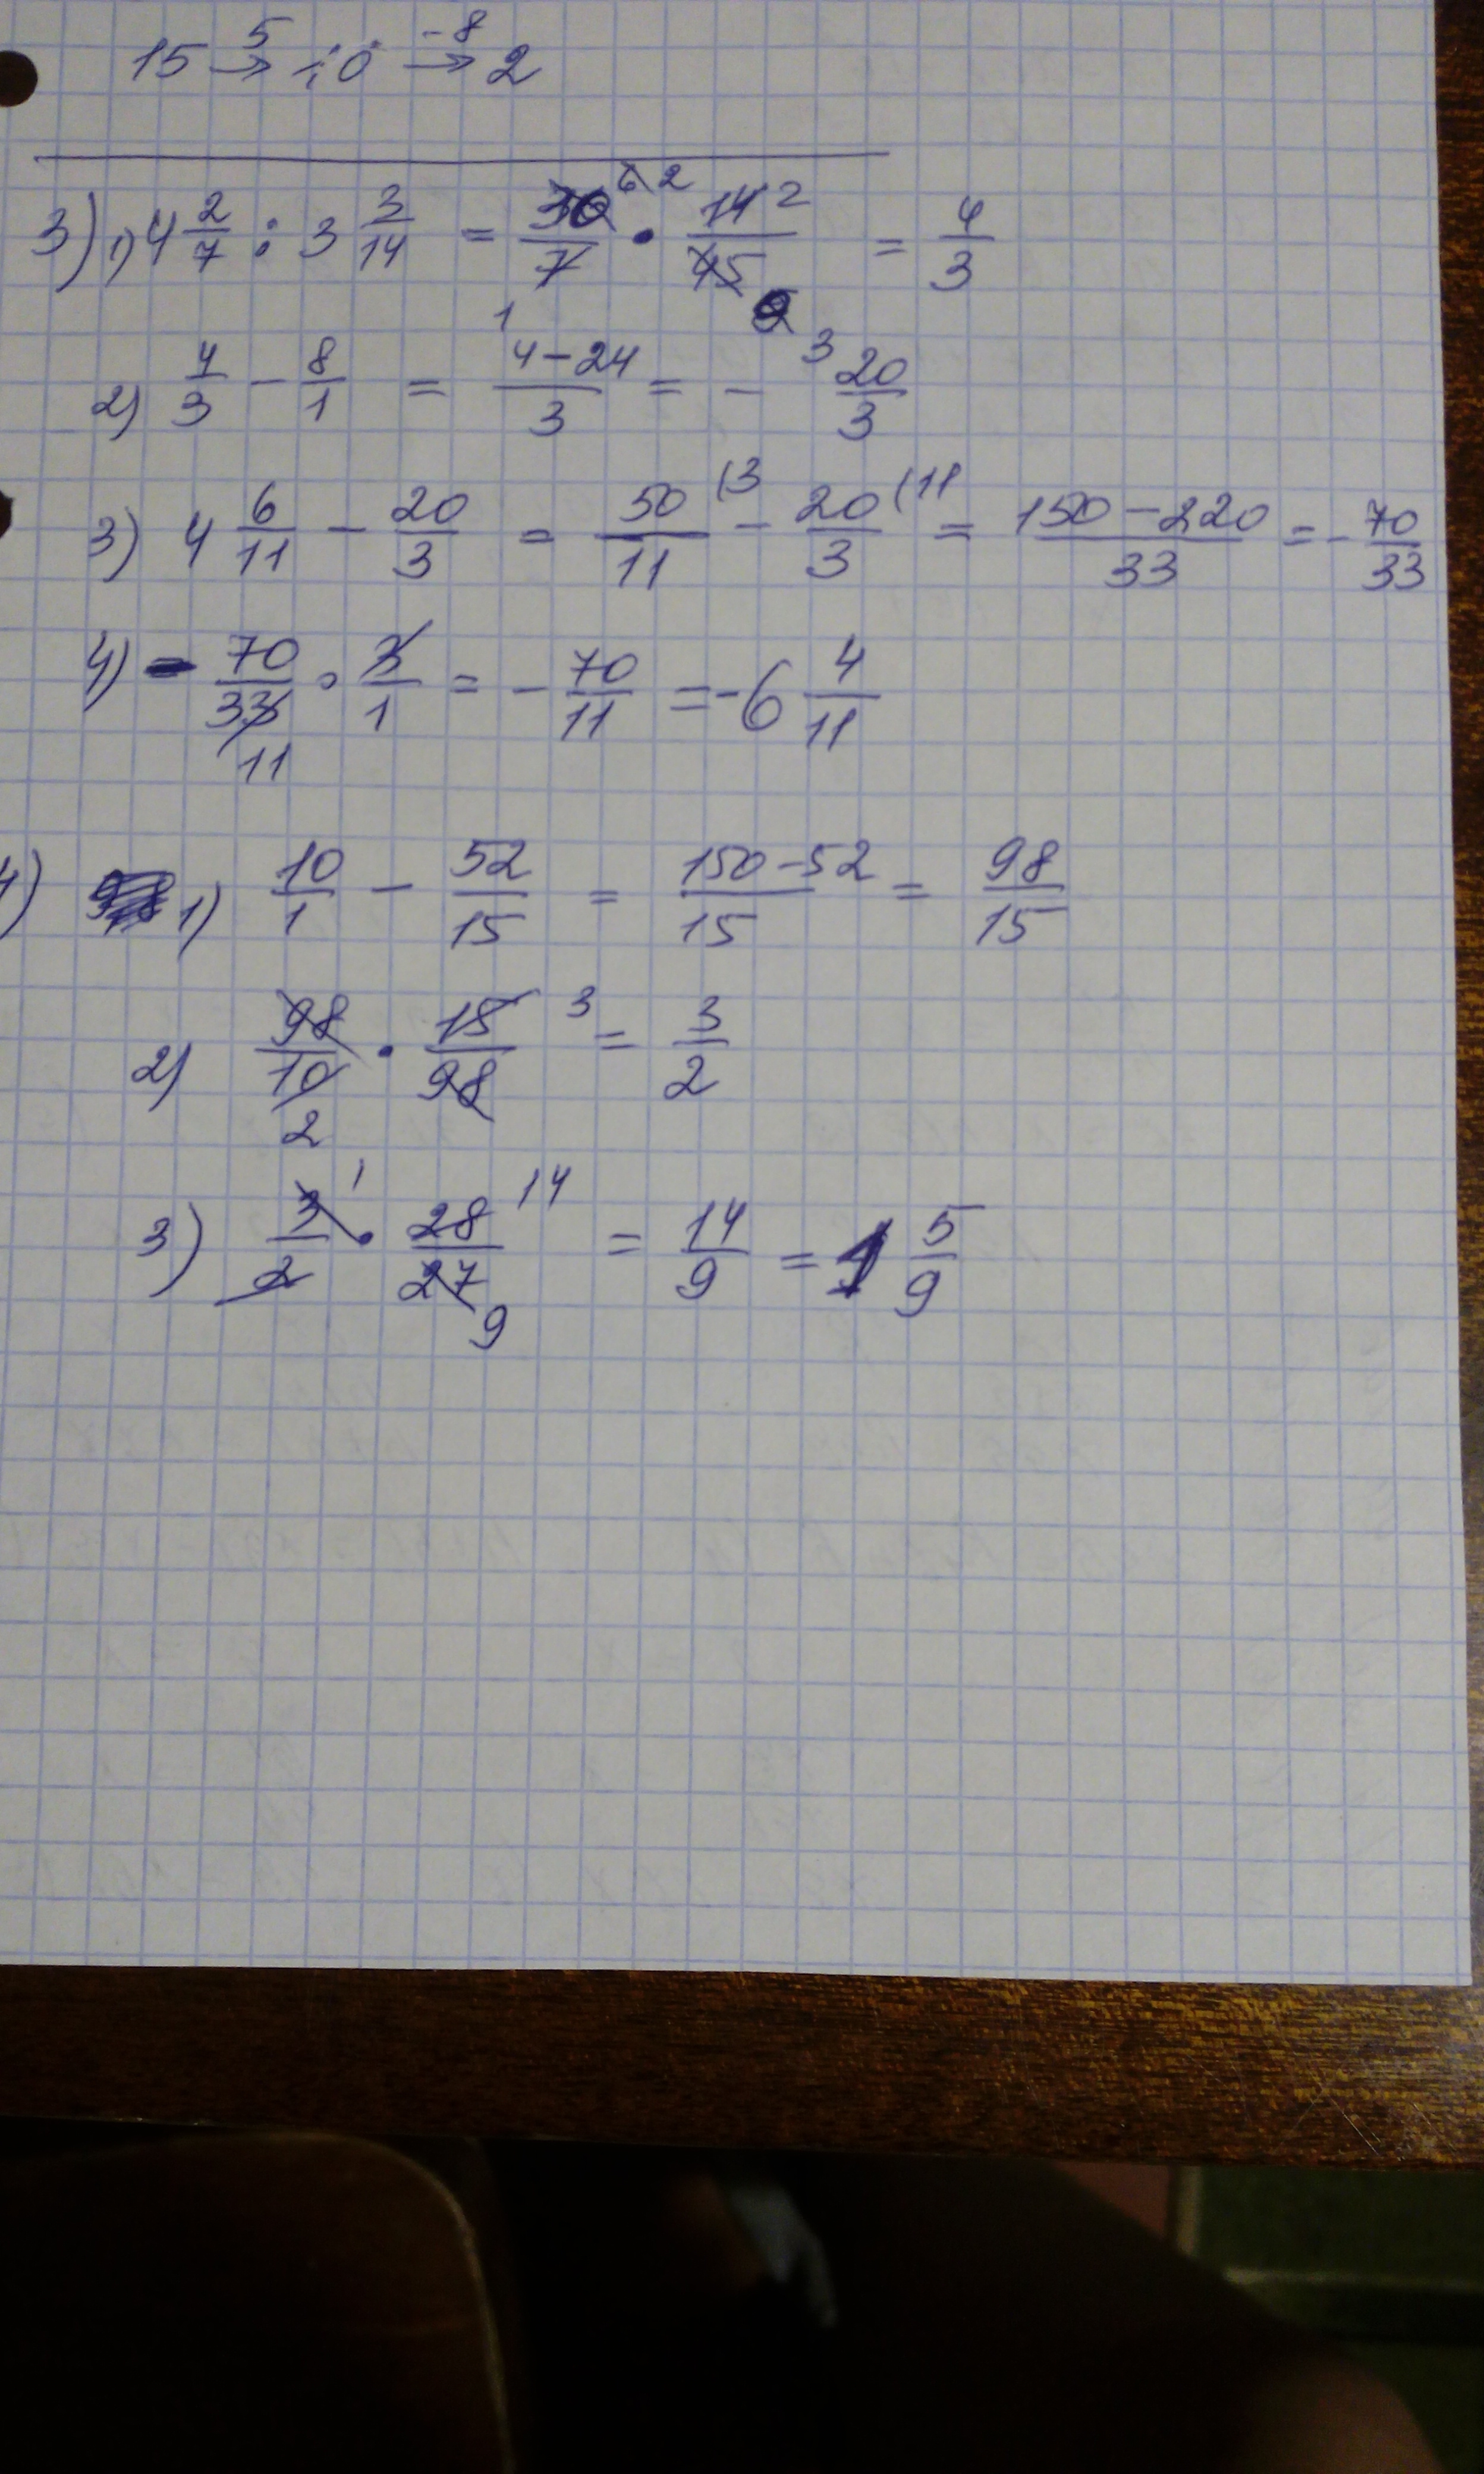 15 →5 10 →-8 2
3) 1) 4 2/7 : 3 3/14 = 30/7 • 14/45 = 4/3
6 2 2
1 9 3
2) 4/3 - 8/1 = (4-24)/3 = - 20/3
3) 4 6/11 - 20/3 = 50/11 (3 - 20/3 (11 = (150-220)/33 = - 70/33
4) - 70/33 • 3/1 = - 70/11 = -6 4/11
11
4) 1) 10/1 - 52/15 = (150-52)/15 = 98/15
2) 98/10 • 15/98 3 = 3/2
2
3) 3/2 1 • 28/27 14 = 14/9 = 1 5/9
9